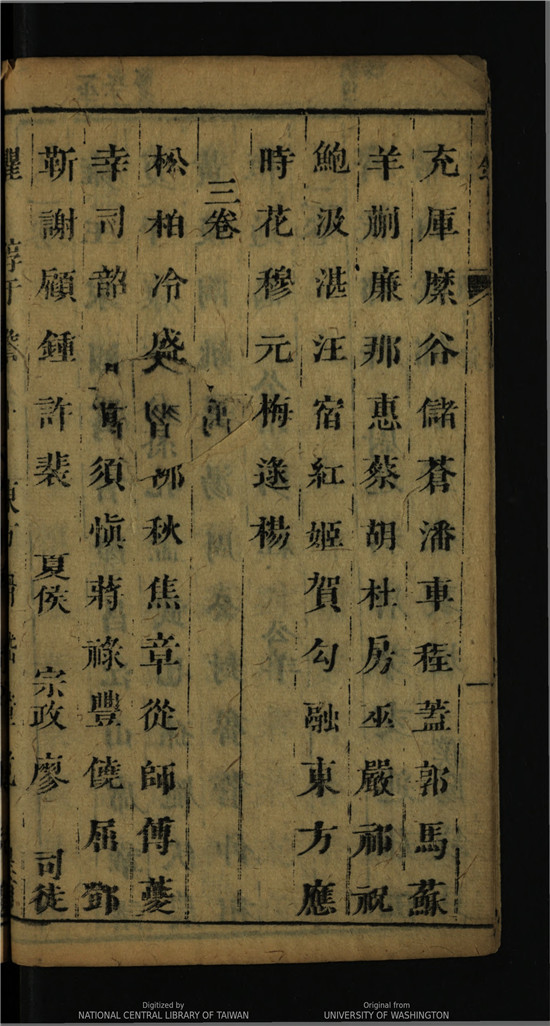 充厙麋谷儲蒼潘車程蓋郭馬蘇
羊蒯廉那惠蔡胡杜房巫嚴祁祝
鮑汲湛汪宿紅姬賀勾融東方應
時花穆元梅逯楊
三卷
松柏冷盛郗秋焦章從師傅蔓
幸司部須慎蔣祿豐饒屈鄧
靳謝顧鍾許裴 夏侯 宗政 廖 司徒
Digitized by
NATIONAL CENTRAL LIBRARY OF TAIWAN
Original from
UNIVERSITY OF WASHINGTON